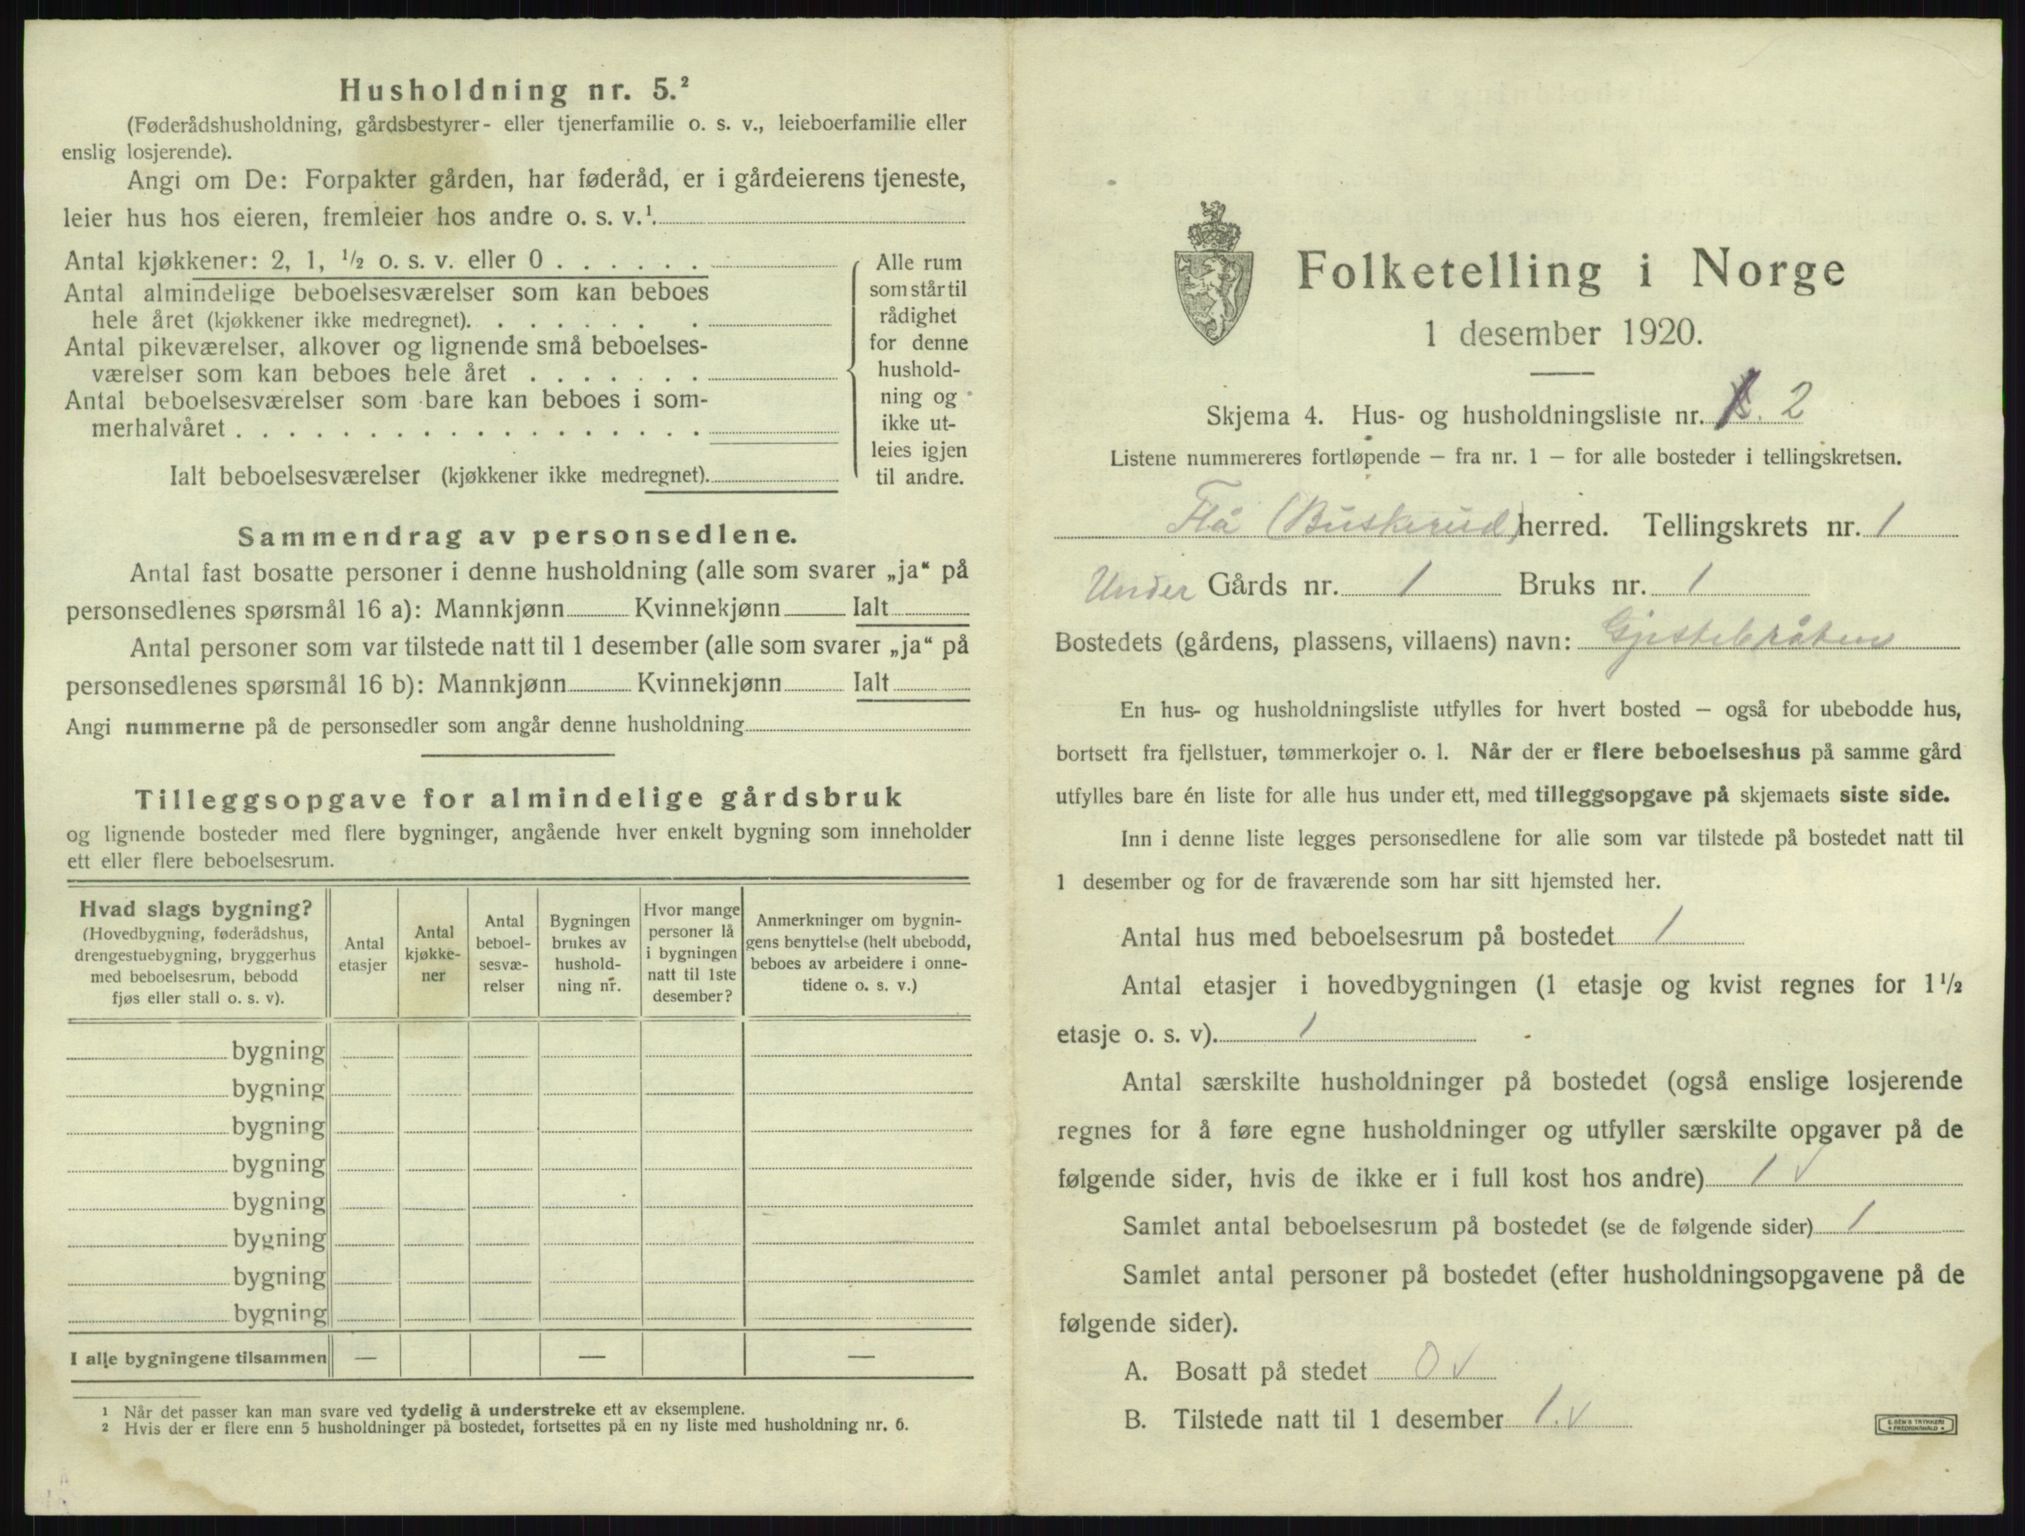 Husholdning nr. 5.²
(Føderådshusholdning, gårdsbestyrer- eller tjenerfamilie o. s. v., leieboerfamilie eller
enslig losjerende).
Angi om De: Forpakter gården, har føderåd, er i gårdeierens tjeneste,
leier hus hos eieren, fremleier hos andre o. s. v.¹
Antal kjøkkener: 2, 1, ½ o. s. v. eller 0
Antal almindelige beboelsesværelser som kan beboes
hele året (kjøkkener ikke medregnet).
Antal pikeværelser, alkover og lignende små beboelses-
værelser som kan beboes hele året
Antal beboelsesværelser som bare kan beboes i som-
merhalvåret
Ialt beboelsesværelser (kjøkkener ikke medregnet).
Alle rum
som står til
rådighet
for denne
hushold-
ning og
ikke ut-
leies igjen
til andre.
Sammendrag av personsedlene.
Antal fast bosatte personer i denne husholdning (alle som svarer „ja“ på
personsedlenes spørsmål 16 a): Mannkjønn Kvinnekjønn Ialt
Antal personer som var tilstede natt til 1 desember (alle som svarer „ja“ på
personsedlenes spørsmål 16 b): Mannkjønn Kvinnekjønn Ialt
Angi nummerne på de personsedler som angår denne husholdning
Tilleggsopgave for almindelige gårdsbruk
og lignende bosteder med flere bygninger, angående hver enkelt bygning som inneholder
ett eller flere beboelsesrum.
Hvad slags bygning?
(Hovedbygning, føderådshus,
drengestuebygning, bryggerhus
med beboelsesrum, bebodd
fjøs eller stall o. s. v).
Antal
etasjer
Antal
kjøkke-
ner
Antal
beboel-
sesvæ-
relser
Bygningen
brukes av
hushold-
ning nr.
Hvor mange
personer lå
i bygningen
natt til 1ste
desember?
Anmerkninger om bygnin-
gens benyttelse (helt ubebodd,
beboes av arbeidere i onne-
tidene o. s. v.)
bygning
bygning
bygning
bygning
bygning
bygning
bygning
bygning
I alle bygningene tilsammen — — —
1 Når det passer kan man svare ved tydelig å understreke ett av eksemplene.
2 Hvis der er flere enn 5 husholdninger på bostedet, fortsettes på en ny liste med husholdning nr. 6.
Folketelling i Norge
1 desember 1920.
Skjema 4. Hus- og husholdningsliste nr. 2
Listene nummereres fortløpende — fra nr. 1 — for alle bosteder i tellingskretsen.
Flå (Buskerud) herred. Tellingskrets nr. 1
Under Gårds nr. 1 Bruks nr. 1
Bostedets (gårdens, plassens, villaens) navn: Gjestebråten
En hus- og husholdningsliste utfylles for hvert bosted — også for ubebodde hus,
bortsett fra fjellstuer, tømmerkojer o. l. Når der er flere beboelseshus på samme gård
utfylles bare én liste for alle hus under ett, med tilleggsopgave på skjemaets siste side.
Inn i denne liste legges personsedlene for alle som var tilstede på bostedet natt til
1 desember og for de fraværende som har sitt hjemsted her.
Antal hus med beboelsesrum på bostedet 1
Antal etasjer i hovedbygningen (1 etasje og kvist regnes for 1½
etasje o. s. v). 1
Antal særskilte husholdninger på bostedet (også enslige losjerende
regnes for å føre egne husholdninger og utfyller særskilte opgaver på de
følgende sider, hvis de ikke er i full kost hos andre) 1 v
Samlet antal beboelsesrum på bostedet (se de følgende sider) 1
Samlet antal personer på bostedet (efter husholdningsopgavene på de
følgende sider).
A. Bosatt på stedet 0 v
B. Tilstede natt til 1 desember 1. v